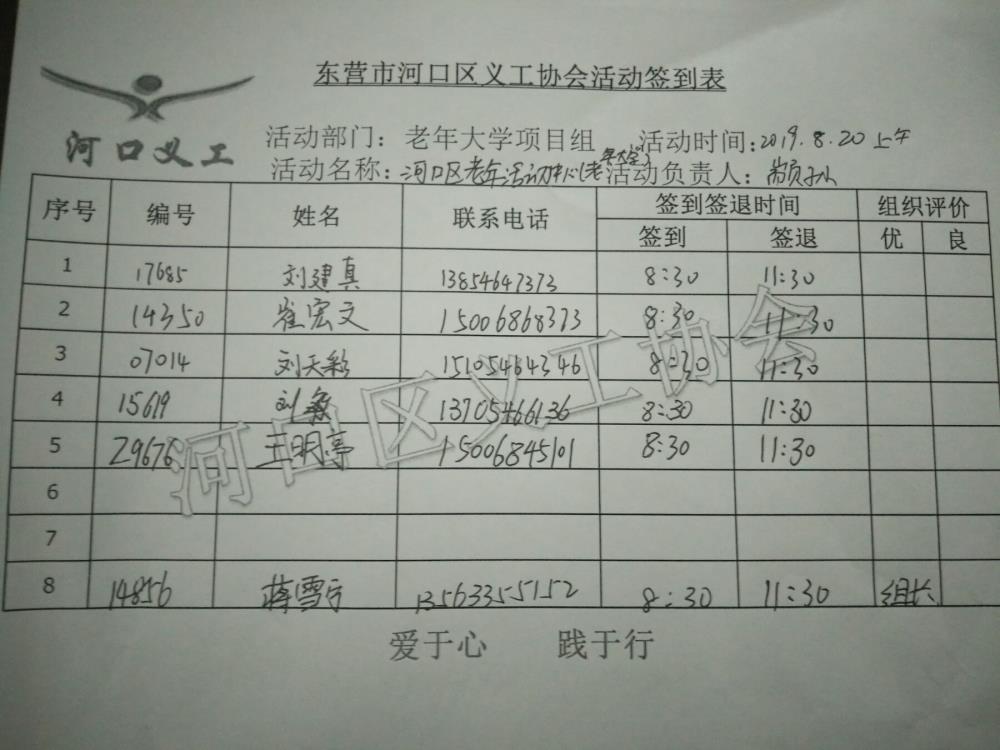 东营市河口区义工协会活动签到表
河口义工
活动部门：老年大学项目组 活动时间：2019.8.20上午
活动名称：河口区老年活动中心(老年大学) 活动负责人：
序号 编号 姓名 联系电话 签到签退时间 组织评价
签到 签退 优 良
1 17685 刘建真 13854647373 8:30 11:30
2 14350 崔宏文 15006868373 8:30 11:30
3 07014 刘天彩 15105464346 8:30 11:30
4 15619 刘 13705466136 8:30 11:30
5 29678 王明亭 15006845101 8:30 11:30
6
7
8 14856 蒋雪宁 13563355152 8:30 11:30 组长
河口区义工协会
爱于心 践于行